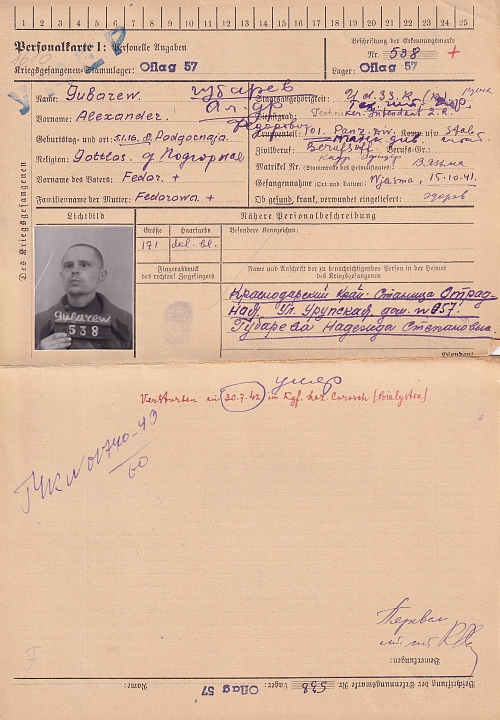 1 2 3 4 5 6 7 8 9 10 11 12 13 14 15 16 17 18 19 20 21 22 23 24 25
Personalkarte I: Personelle Angaben
Kriegsgefangenen-Stammlager: Oflag 57
Beschriftung der Erkennungsmarke
Nr. 538 +
Lager: Oflag 57
Des Kriegsgefangenen
Name: Gubarew. Губарев
Vorname: Alexander. Ал-др
Федорович
Geburtstag und -ort: 5.1.16. Podgornaja
Religion: Gottlos. Подгорная
Vorname des Vaters: Fedor. +
Familienname der Mutter: Fedorowa +
Staatsangehörigkeit: U.d.S.S.R. (R) русск
Dienstgrad: Techniker. Intendent 2. R.
Truppenteil: 101. Panz. Div. Komp. usw. Stab.
Zivilberuf: Berufsoff. Berufs-Gr.
Matrikel Nr. (Stammrolle des Heimatstaates) Вязьма
Gefangennahme (Ort und Datum): Wjasma, 15.10.41.
Ob gesund, krank, verwundet eingeliefert: здоров
Lichtbild
Gubarew
538
Nähere Personalbeschreibung
Größe Haarfarbe Besondere Kennzeichen:
171 dkl. bl.
Fingerabdruck
des rechten! Zeigefingers
Name und Anschrift der zu benachrichtigenden Person in der Heimat
des Kriegsgefangenen
Краснодарский край. Станица Отрад-
ная, Ул. Урупская, дом. № 957.
Губарева Надежда Степановна.
Wenden!
умер
Verstorben am 30.7.42 im Kgf. Laz. (Bialystok)
ГУК № 01740-43
/60
Bemerkungen:
Beschriftung der Erkennungsmarke Nr. 538 Lager: Oflag 57 Name: